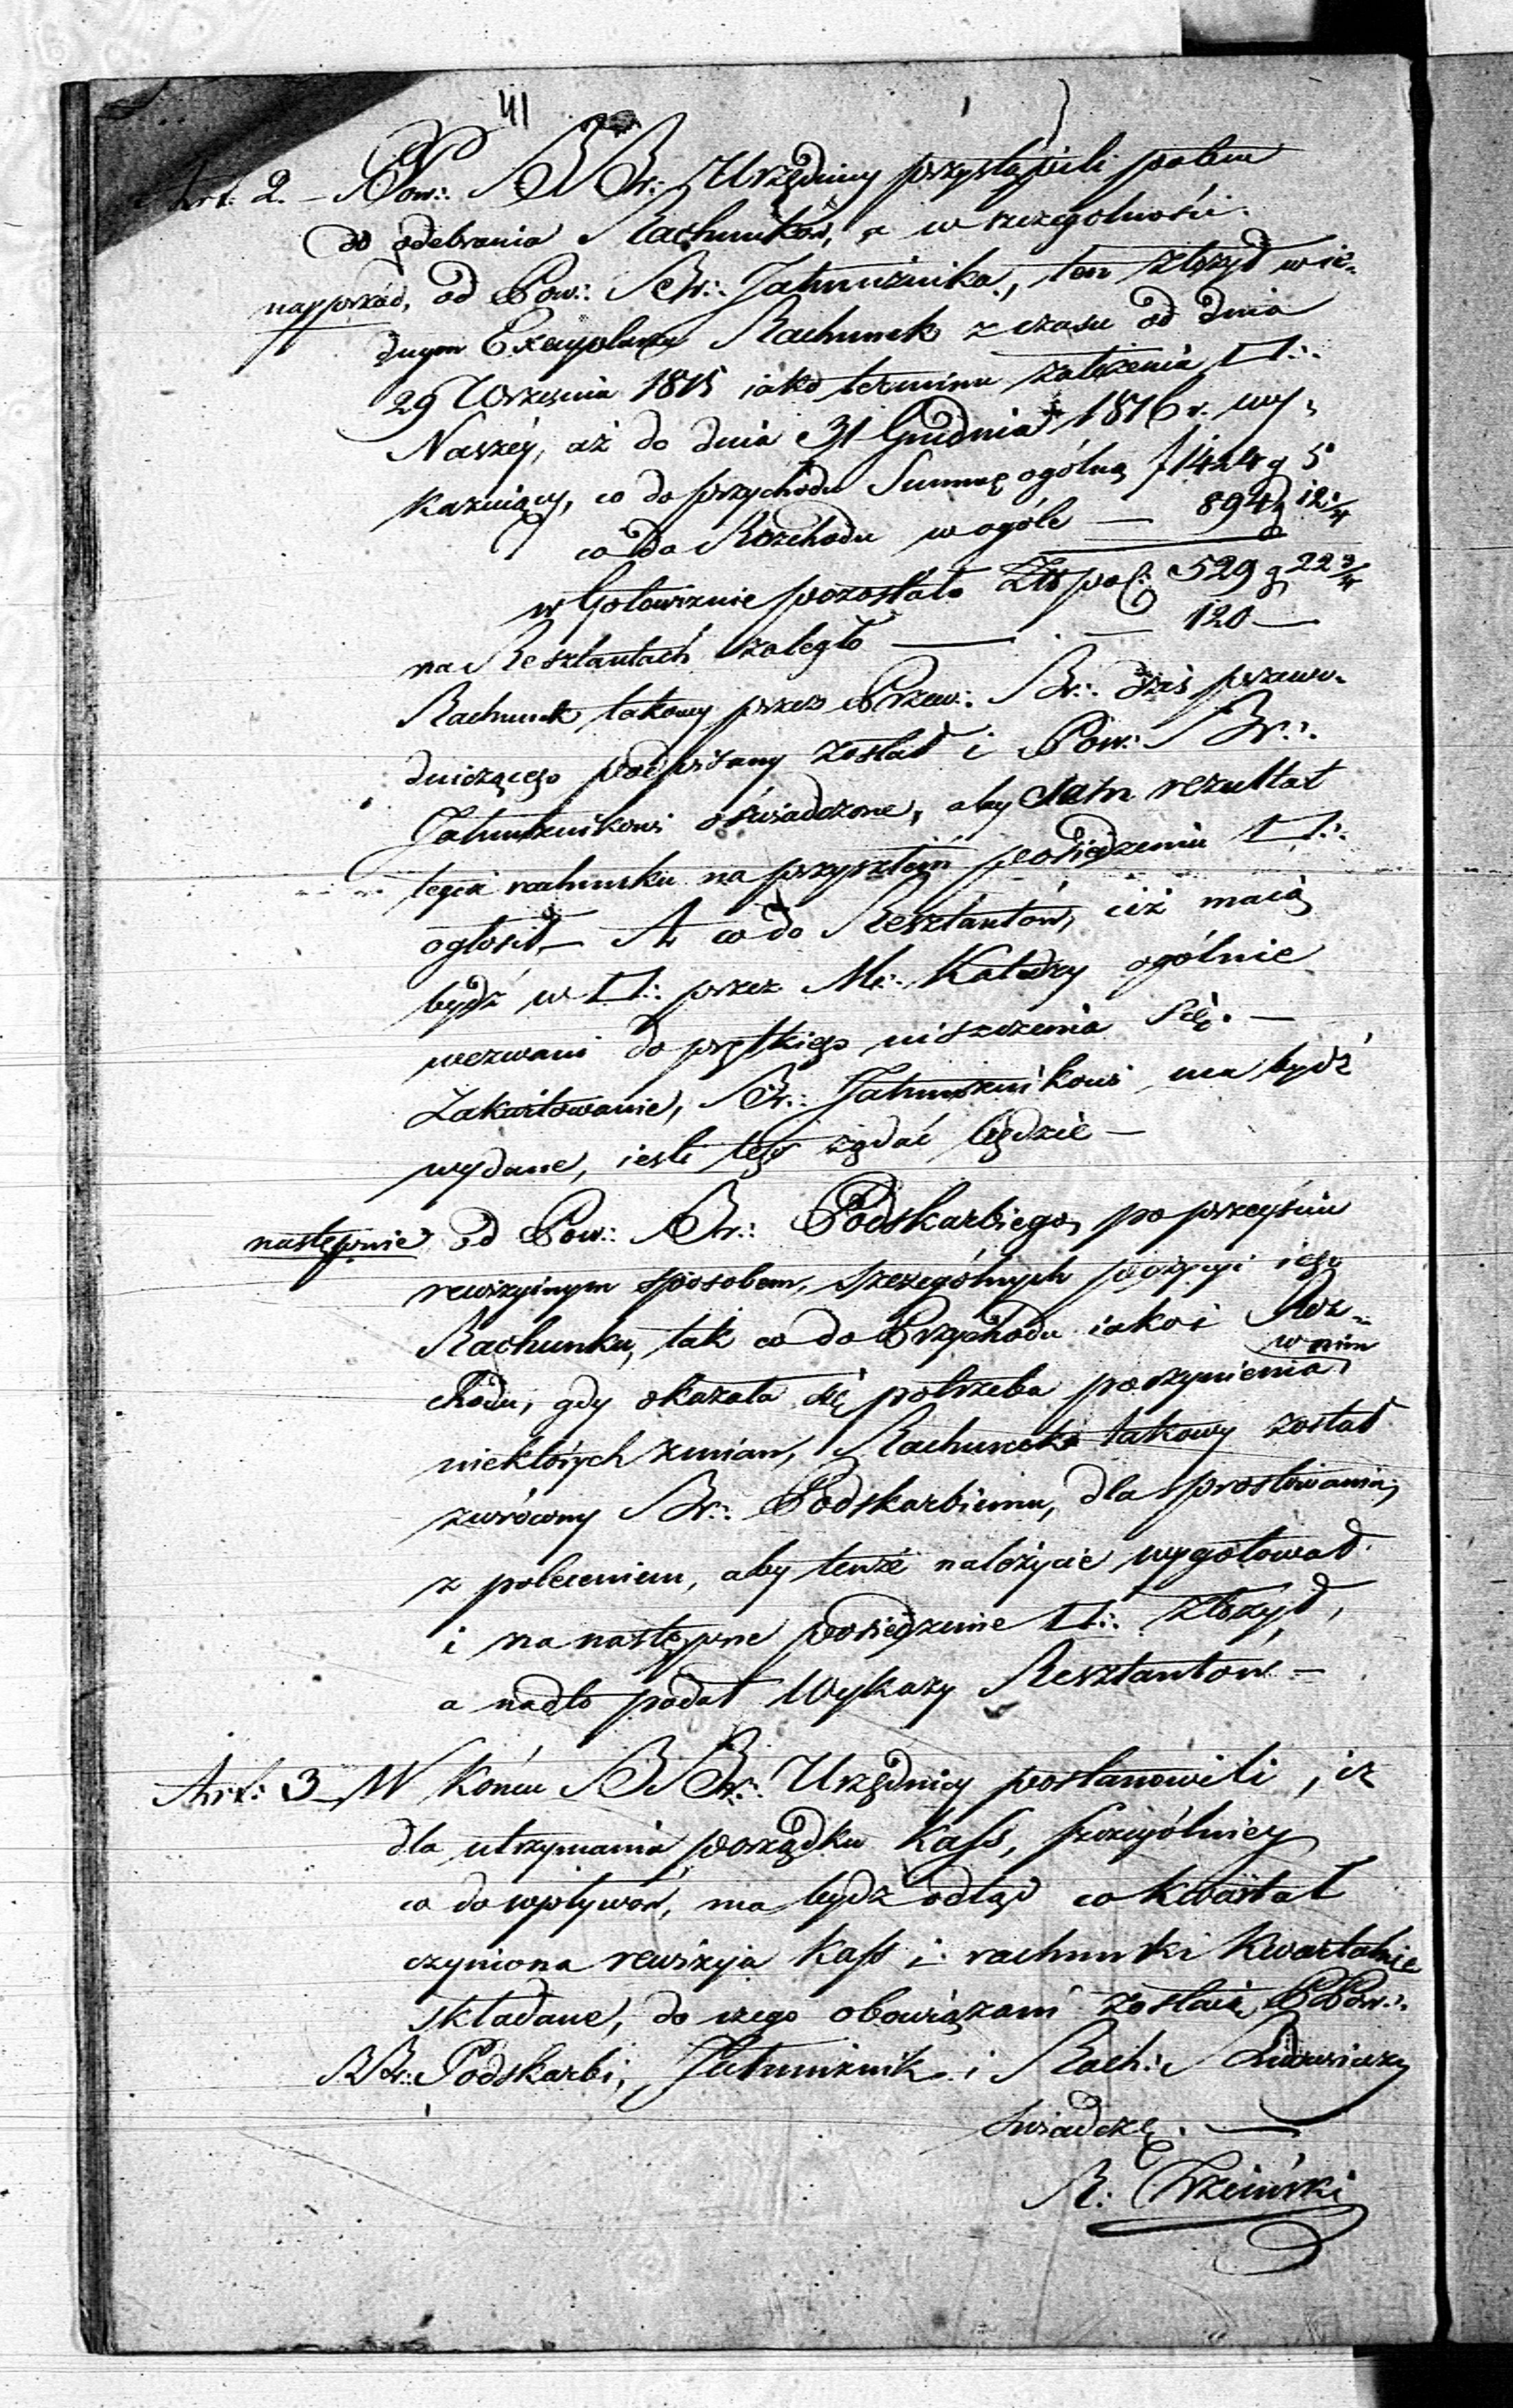 41
Art: 2. – Pow:. BBr:. Urzędnicy przystąpili potem
do odebrania Rachunków, a w szczególności.
naprzód, od Pow:. Br:. Jałmużnika, ten złożył w ie-
dnym Exemplarzu Rachunek z czasu od dnia
29 Września 1815 iako terminu założenia □:.
Naszéy, aż do dnia 31 Grudnia 1816 r. wy-
kazuiący, co do przychodu Summę ogólną f 1424 g 5
co do Rozchodu w ogóle — 894 g 12 1/4
w Gotowiznie pozostało Złt pol: 529 g 22 3/4
na Resztantach zaległo — . — 120 —
Rachunek takowy przez Przew:. Br:. dziś przewo-
dniczącego podpisany został i Pow:. Br:.
Jałmużnikowi oświadczone, aby sam rezultat
tegoż rachunku na przyszłém posiedzeniu □:.
ogłosił – A co do Resztantów, ciż maią
bydź w □:. przez M:. Katedry ogólnie
wezwani do prętkiego uiszczenia się. —
Zakwitowanie, Br:. Jałmużnikowi ma bydź
wydane, iesli tego żądać będzie —
następnie od Pow:. Br:. Podskarbiego, po przeyściu
rewizyinym sposobem, szczególnych pozycyi iego
Rachunku, tak co do Przychodu iako i Roz-
w nim
chodu, gdy okazała się potrzeba poczynienia
niektórych zmian, Rachunek takowy został
zwrócony Br:. Podskarbiemu, dla sprostowania,
z poleceniem, aby tenże należycie wygotował
i na następne posiedzenie □:. złożył,
a nadto podał Wykazy Resztantów —
Art: 3 – W końcu BBr:. Urzędnicy postanowili, iż
dla utrzymania porządku Kass, szczególniey
co do wpływów, ma bydź odtąd co kwartał
czyniona rewizyia Kass i rachunki kwartalnie
składane, do czego obowiązani zostaią PPow:.
BBr:. Podskarbi, Jałmużnik i Rach:.
świadczę. —